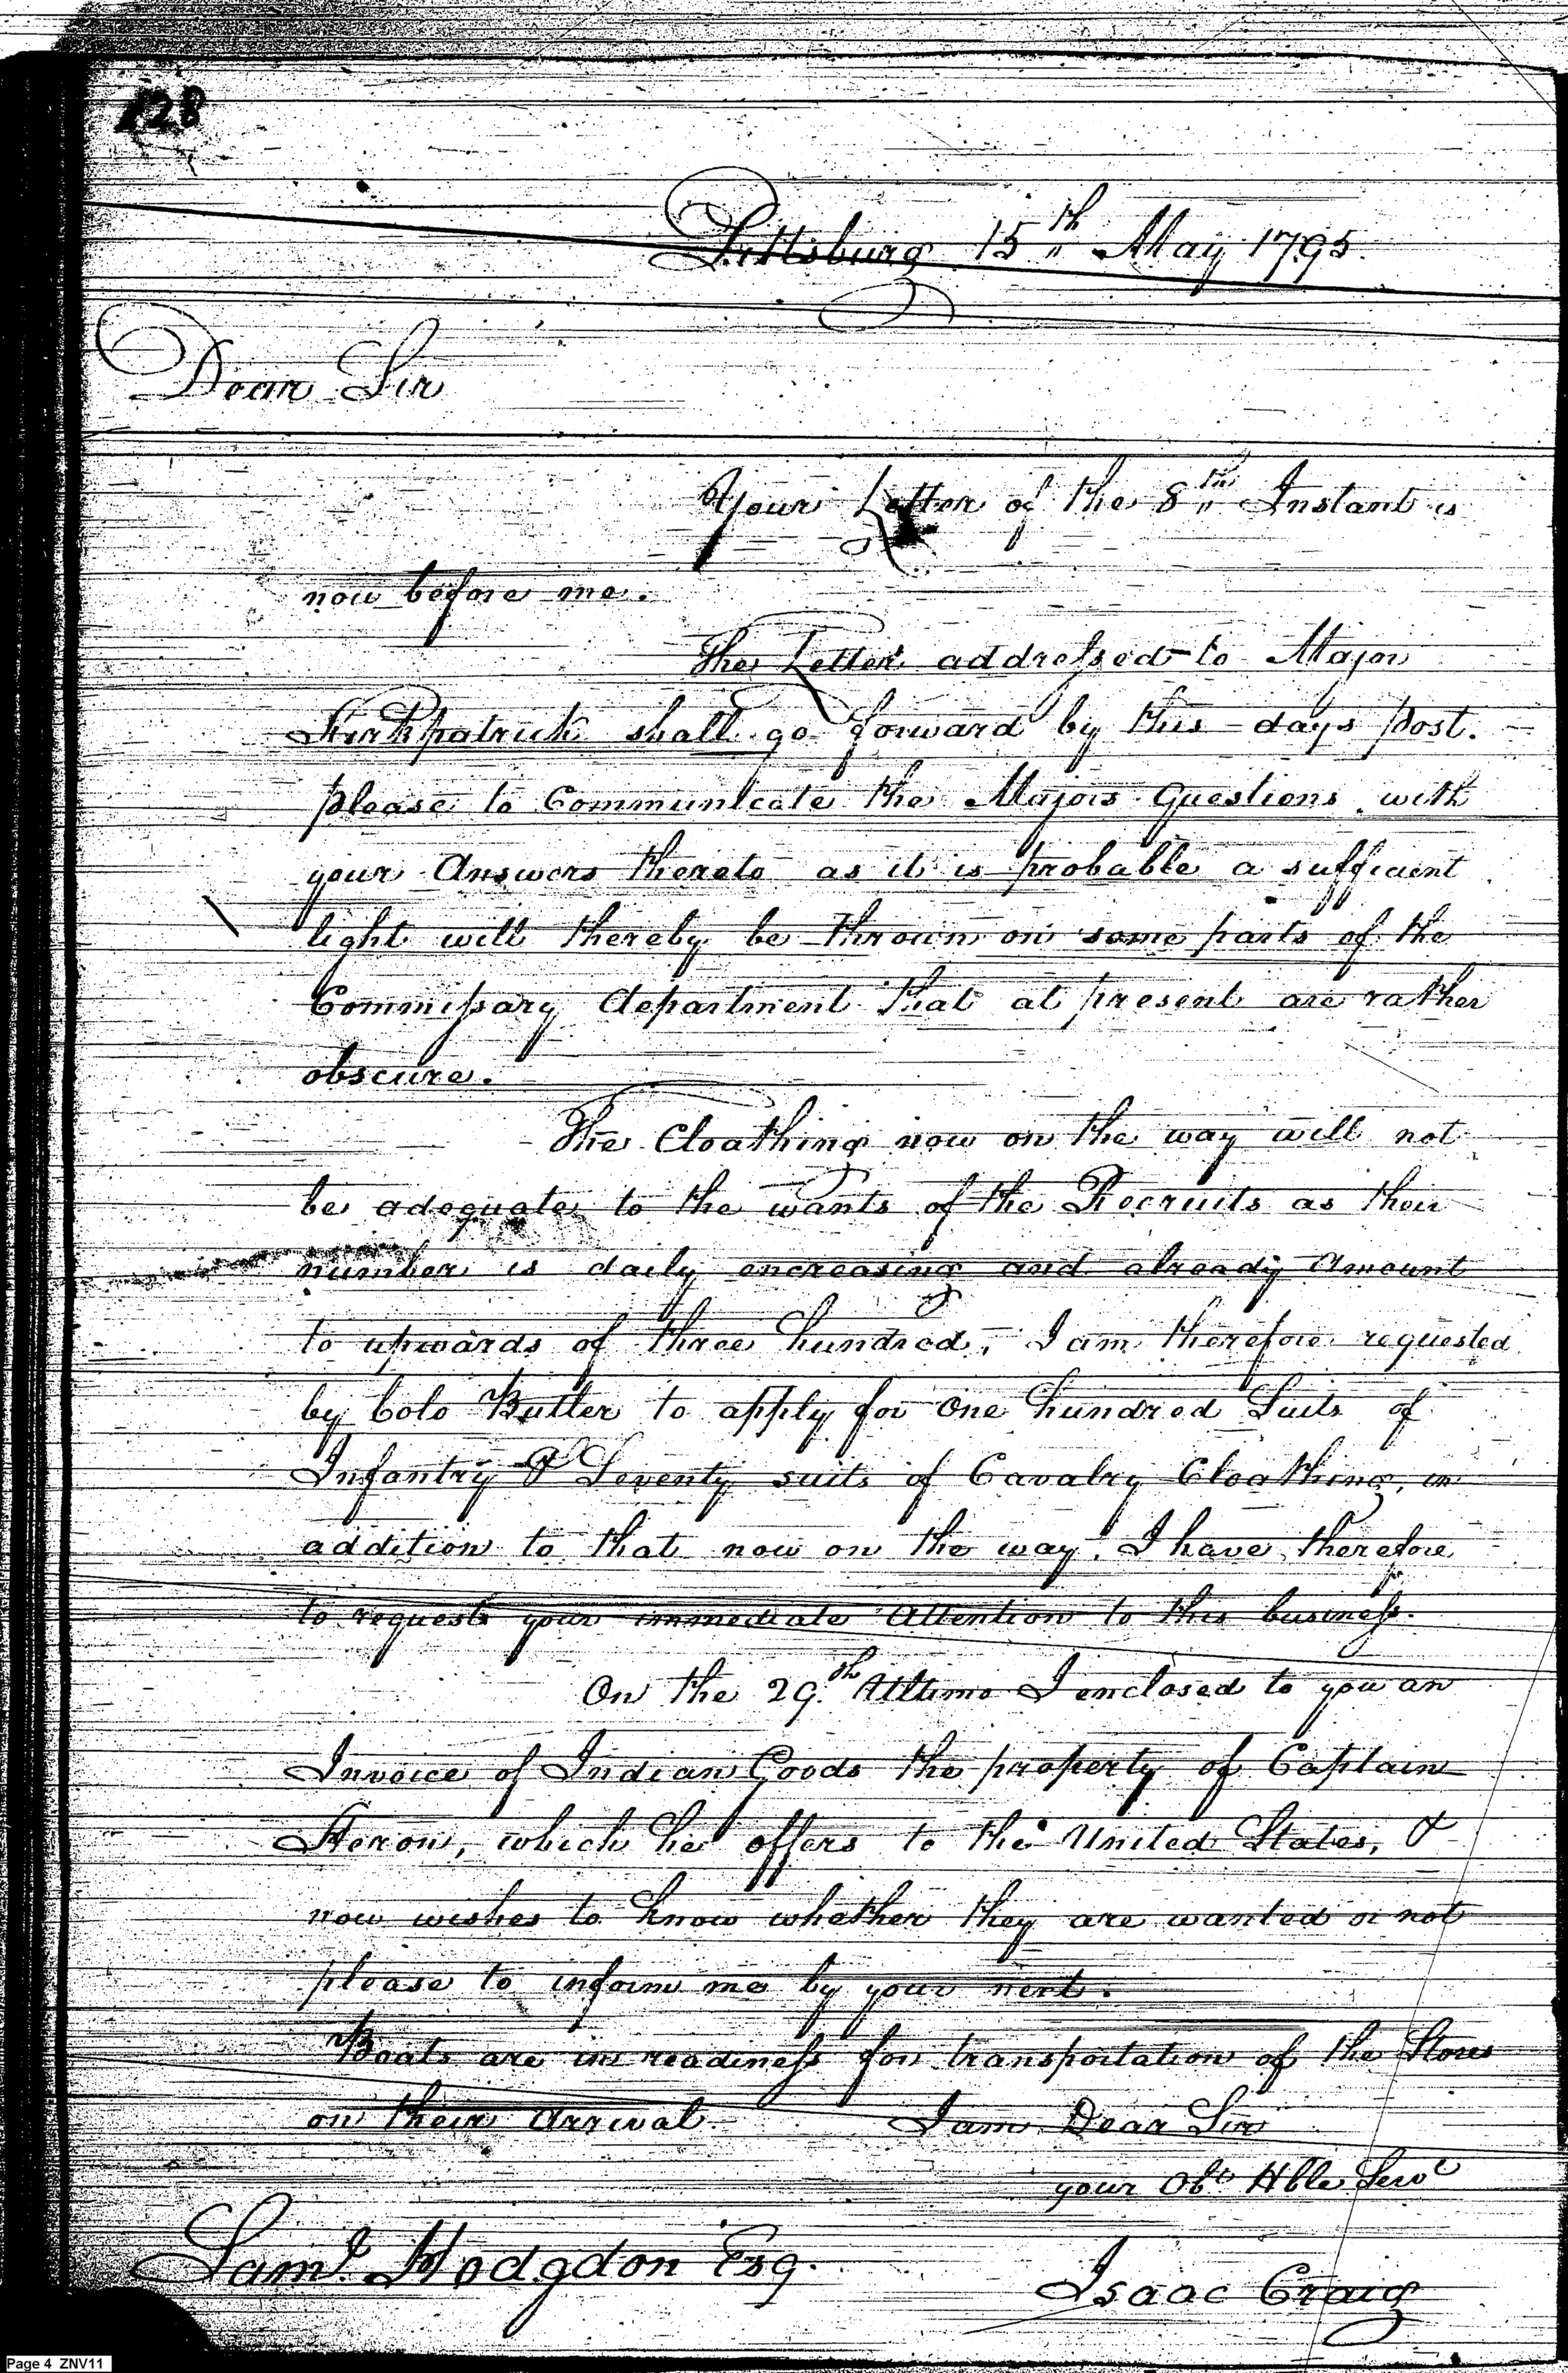 128
Pittsburg 15th May 1795.
Dear Sir
Your Letter of the 8th Instant is
now before me.
The Letter addressed to Major
Kirkpatrick shall go forward by this days post.
please to Communicate the Majors Questions with
your Answers thereto as it is probable a sufficient
light will thereby be thrown on some parts of the
Commissary department that at present are rather
obscure.
The Cloathing now on the way will not
be adequate to the wants of the Recruits as their
number is daily encreasing and already Amount
to upwards of three hundred, I am therefore requested
by Colo Butler to apply for One hundred Suits of
Infantry & Seventy suits of Cavalry Cloathing, in
addition to that now on the way. I have therefore
to request your immediate Attention to this business.
On the 29th Ultimo I enclosed to you an
Invoice of Indian Goods the property of Captain
Heron, which he offers to the United States, &
now wishes to know whether they are wanted or not
please to inform me by your next.
Boats are in readiness for transportation of the Stores
on their Arrival. I am Dear Sir
your Obt Hble Servt
Saml Hodgdon Esq.
Isaac Craig
Page 4 ZNV11